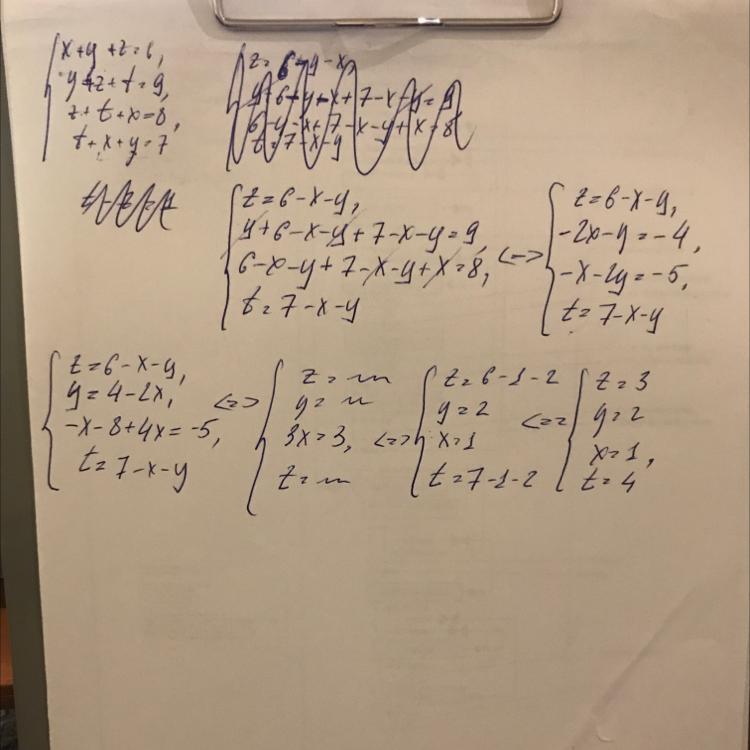 x+y+z=6,
y+z+t=9,
z+t+x=8,
t+x+y=7
z=6-y-x
y+6-y-x+7-x-y=9
6-y-x+7-x-y+x=8
t=7-x-y
z=6-x-y,
y+6-x-y+7-x-y=9,
6-x-y+7-x-y+x=8,
t=7-x-y
<=>
z=6-x-y,
-2x-y=-4,
-x-2y=-5,
t=7-x-y
z=6-x-y,
y=4-2x,
-x-8+4x=-5,
t=7-x-y
<=>
z=
y=
3x=3,
t=
<=>
z=6-1-2
y=2
x=1
t=7-1-2
<=>
z=3
y=2
x=1,
t=4